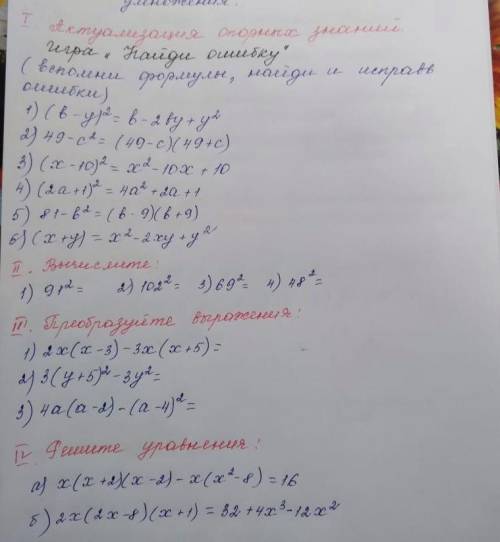 умножения.
I Актуализация опорных знаний.
Игра „Найди ошибку"
(вспомни формулы, найди и исправь
ошибки)
1) (в-у)² = в - 2ву + у²
2) 49 - с² = (49-с)(49+с)
3) (х-10)² = х² - 10х + 10
4) (2а+1)² = 4а² + 2а + 1
5) 81 - в² = (в-9)(в+9)
6) (х+у) = х² - 2ху + у²
II. Вычислите:
1) 91² = 2) 102² = 3) 69² = 4) 48² =
III. Преобразуйте выражения:
1) 2х(х-3) - 3х(х+5) =
2) 3(у+5)² - 3у² =
3) 4а(а-2) - (а-4)² =
IV Решите уравнения:
а) х(х+2)(х-2) - х(х²-8) = 16
б) 2х(2х-8)(х+1) = 32 + 4х³ - 12х²